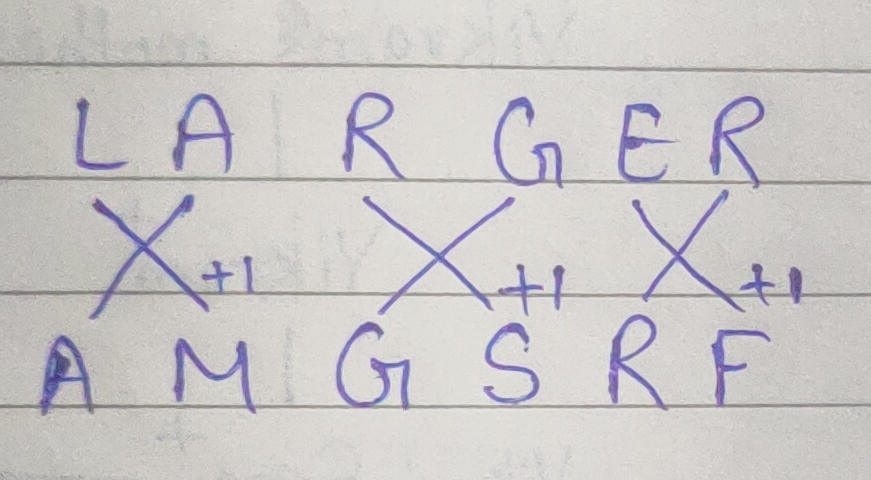 L A R G E R
+1 +1 +1
A M G S R F